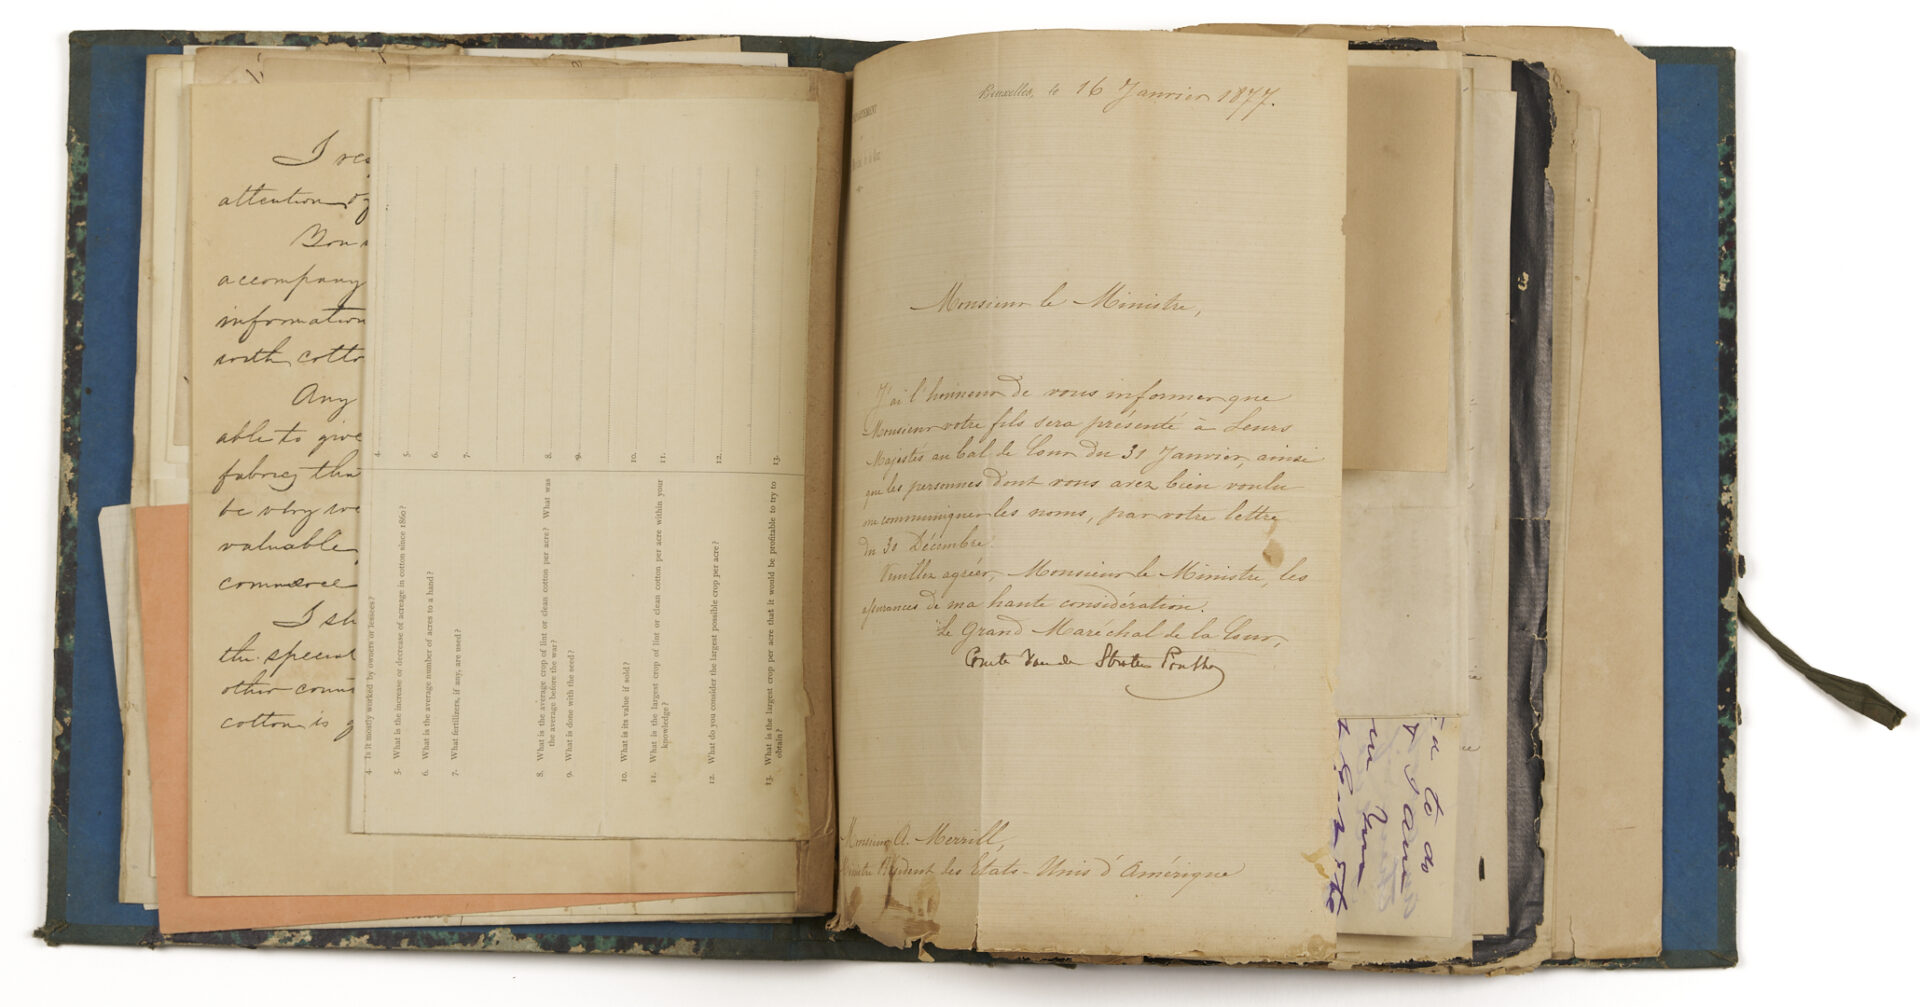 I res
attention of
accompany
information
with cotto
Any
able to give
be very we
valuable
commerce
I sh
the special
other coun
cotton is g
4.
5.
6.
7.
8.
9.
10.
11.
12.
13.
4. Is it mostly worked by owners or lessees?
5. What is the increase or decrease of acreage in cotton since 1860?
6. What is the average number of acres to a hand?
7. What fertilizers, if any, are used?
8. What is the average crop of lint or clean cotton per acre? What was
the average before the war?
9. What is done with the seed?
10. What is its value if sold?
11. What is the largest crop of lint or clean cotton per acre within your
knowledge?
12. What do you consider the largest possible crop per acre?
13. What is the largest crop per acre that it would be profitable to try to
obtain?
Bruxelles, le 16 Janvier 1877.
Monsieur le Ministre,
J'ai l'honneur de vous informer que
Monsieur votre fils sera présenté à Leurs
Majestés au bal de Cour du 31 Janvier, ainsi
que les personnes dont vous avez bien voulu
me communiquer les noms, par votre lettre
du 30 Décembre.
Veuillez agréer, Monsieur le Ministre, les
assurances de ma haute considération.
Le Grand Maréchal de la Cour,
Comte Van der Straten Ponthoz
Monsieur A. Merrill,
Ministre Résident des Etats-Unis d'Amérique